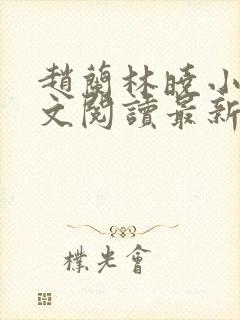 趙蘭林曉小
文閱讀最新
樸光會